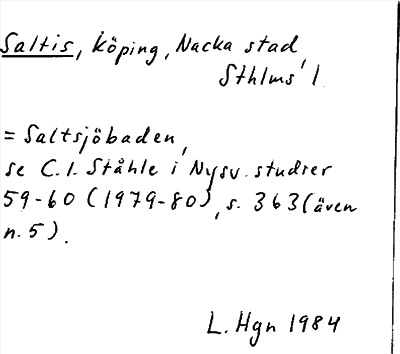 Saltis, köping, Nacka stad
Sthlms l.
= Saltsjöbaden,
se C.I. Ståhle i Nysv. studier
59-60 (1979-80), s. 363 (även
n. 5).
L. Hgn 1984